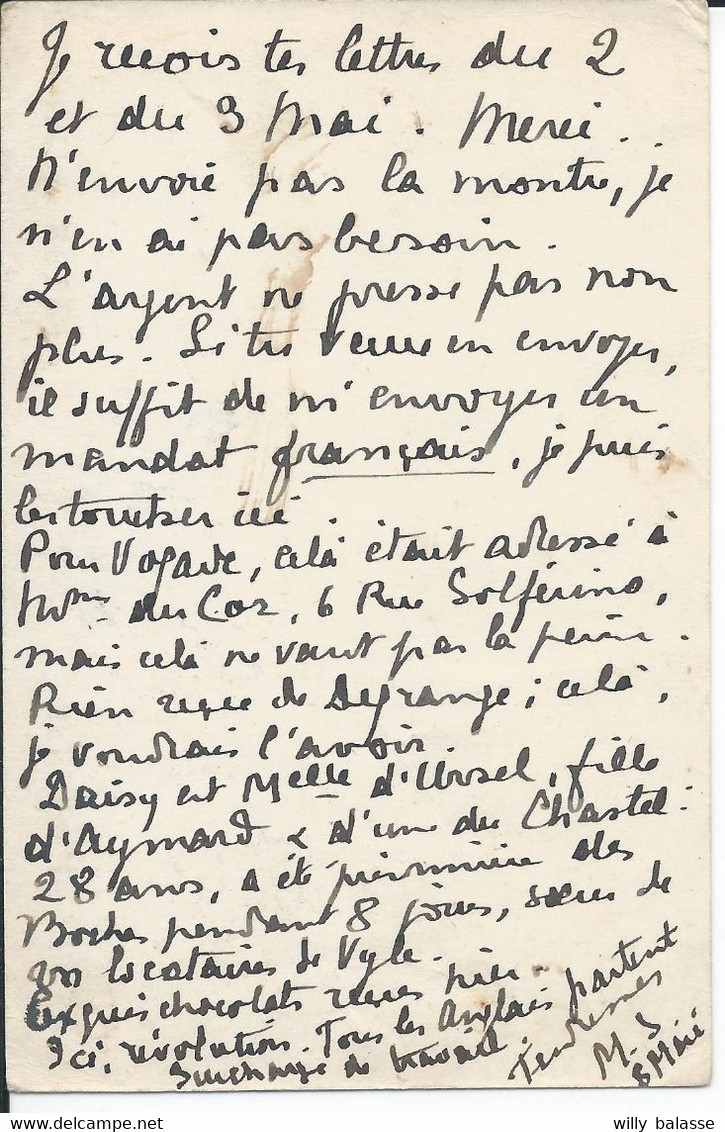 Je reçois tes lettres du 2
et du 3 Mai. Merci.
N'envoie pas la montre, je
n'en ai pas besoin.
L'argent ne presse pas non
plus. Si tu veux en envoyer,
il suffit de m'envoyer un
mandat français, je puis
les toucher ici.
Pour Vogade, celà était adressé à
Mme du Coz, 6 Rue Solférino,
mais celà ne vaut pas la peine.
Rien reçu de Degrange; celà,
je voudrais l'avoir.
Daisy est Melle d'Ursel, fille
d'Aymard & d'une du Chastel:
28 ans, a été prisonnière des
Boches pendant 8 jours, sœur de
vos locataires de Vyle.
Exquis chocolats reçus hier.
Ici, révolution. Tous les Anglais partent
Surcharge de travail.
Tendresses
M. J
8 Mai
willy balasse